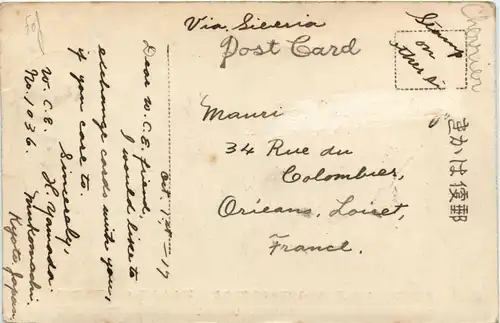 Via Siberia
Post Card
Stamp
on
other
Chennier
Oct. 1st - 17
Dear W.C.E. friend,
I would like to
exchange cards with you,
if you care to.
Sincerely,
W.C.E. H. Yamada.
No. 1036. Mukomachi
Kyoto Japan
Mauri
34 Rue du
Colombier,
Orleans, Loiret,
France.
きかは便郵